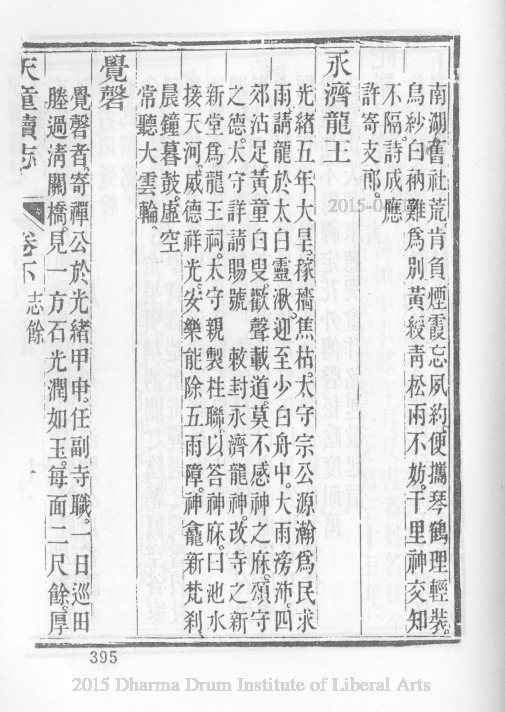 南湖舊社荒肯負煙霞忘夙約便攜琴鶴理輕裝。
烏紗白衲難爲別黃綬青松兩不妨。千里神交知
不隔詩成應
許寄支郎。
永濟龍王
光緒五年大旱。稼穡焦枯。太守宗公源瀚爲民求
雨請龍於太白靈湫。迎至少白舟中。大雨滂沛。四
郊沾足黃童白叟。歡聲載道。莫不感神之庥。頌守
之德。太守詳請賜號 敕封永濟龍神。改寺之新
新堂爲龍王祠。太守親製柱聯。以答神庥。曰池水
接天河。威德祥光。安樂能除五雨障。神龕新梵刹
晨鐘暮鼓。虛空
常聽大雲輪。
覺磬
覺磬者。寄禪公於光緒甲申。任副寺職。一日巡田
塍過淸關橋。見一方石光潤如玉。每面二尺餘。厚
天童續志 卷下 志餘
395
2015-0
2015 Dharma Drum Institute of Liberal Arts